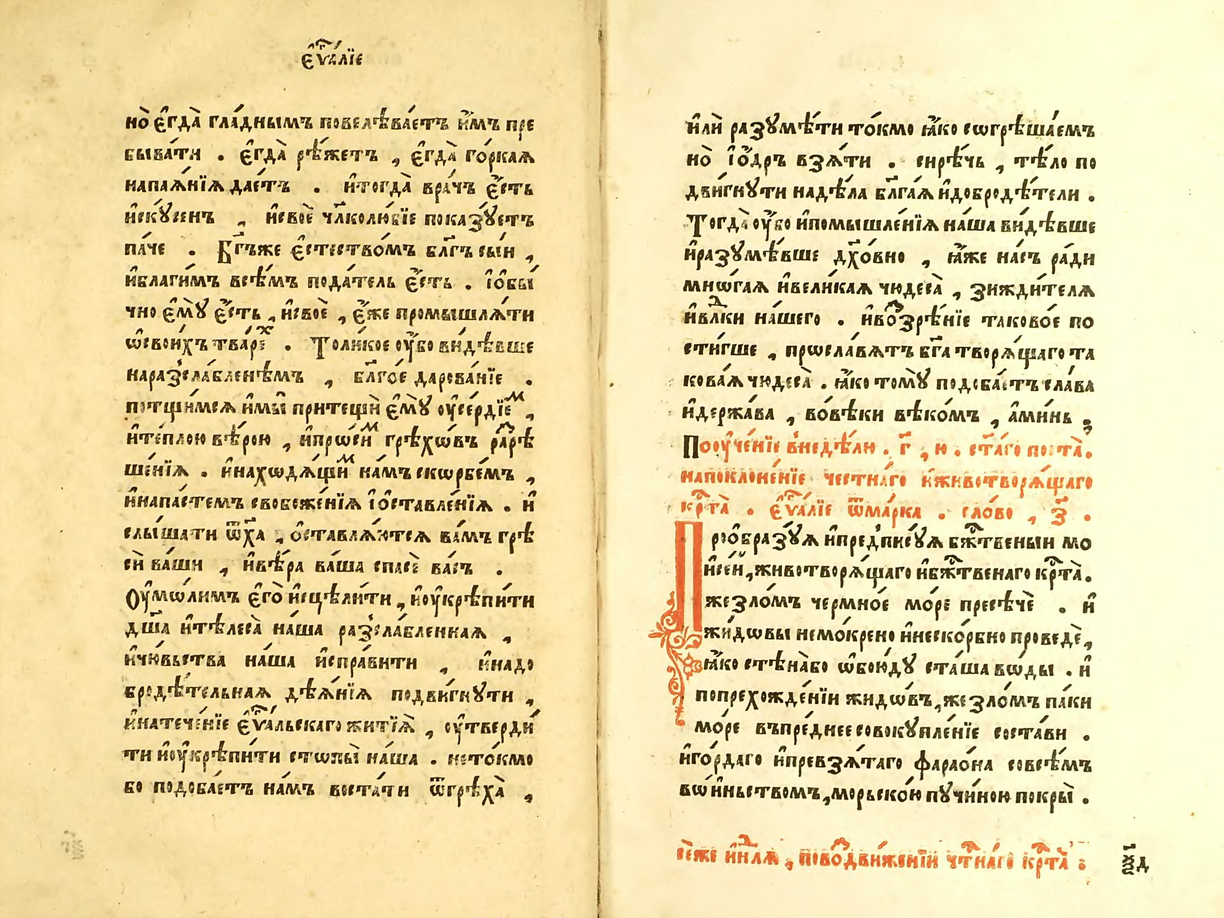 є҆ѵⷢ҇алїе
но̀ є҆гда̀ гла́днымъ повелѣва́етъ и҆̀мъ пре
быва́ти . є҆гда̀ рѣ́жетъ , є҆гда̀ го́ркаѧ
напаѧ҆нїѧ дае́тъ . и҆тогда̀ вра́чъ є҆́сть
и҆ску́сенъ , и҆своѐ чл҃колю́бїе показꙋ́етъ
па́че . Бг҃ъже є҆стество́мъ бл҃гъ сы́и ,
и҆благи́мъ всѣ́мъ пода́тель є҆́сть . і҆ѻ҆бы́
чно є҆мꙋ̀ є҆́сть , и҆своѐ , є҆́же промышлѧ́ти
ѡ҆свои́хъ тва́реⷯ . Толи́кое ᲂу҆́бо ви́дѣвше
нараз̾сла́бленѣмъ , бл҃го́е дарова́нїе .
потщи́мсѧ и҆мы̀ притещѝ є҆мꙋ̀ ᲂу҆се́рдїеⷨ ,
и҆те́плою вѣ́рою , и҆про́сиⷨ грѣхо́въ раⷥрѣ
ше́нїѧ . и҆нахѡдѧ́щиⷨ на́мъ ско́рбемъ ,
и҆напа́стемъ свобоже́нїѧ і҆ѻ҆ставле́нїѧ . и҆
слы́шати ѿх҃а , ѻ҆ставлѧ́ютсѧ ва́мъ грѣ
сѝ ва́ши , и҆вѣ́ра ва́ша спасѐ ва́съ .
Оу҆мо́лимъ є҆го̀ и҆сцѣли́ти , и҆ᲂу҆крѣпи́ти
дш҃а и҆тѣлеса̀ на́ша раз̾сла́бленнаѧ ,
и҆чю́вьства на́ша и҆спра́вити , и҆надо
бродѣ́тельнаѧ дѣѧ́нїѧ подви́гнꙋти ,
и҆натече́нїе є҆ѵⷢ҇альскаго житїѧ̀ , ᲂу҆тверди́
ти и҆ᲂу҆крѣпи́ти стѡпы̀ на́ша . нето́кмо
бо подоба́етъ на́мъ воста́ти ѿгрѣха̀ ,
и҆лѝ разꙋмѣ́ти то́кмо ꙗ҆́ко согрѣша́емъ
но̀ і҆ѻ҆́дръ взѧ́ти . сирѣ́чь , тѣ́ло по
дви́гнꙋти надѣ́ла бл҃га́ѧ и҆добродѣ́тели .
Тогда̀ ᲂу҆́бо и҆помышле́нїѧ на́ша ви́дѣвше
и҆разꙋмѣ́вше дх҃о́вно , ꙗ҆́же на́съ ра́ди
мнѡ́гаѧ и҆вели́каѧ чюдеса̀ , зижди́телѧ
и҆влⷣки на́шего . и҆воззрѣ́нїе таково́е по
сти́гше , просла́вѧтъ бг҃а творѧ́щаго та
кова́ѧ чюдеса̀ . ꙗ҆́ко томꙋ̀ подоба́етъ сла́ва
и҆держа́ва , вовѣ́ки вѣко́мъ , а҆ми́нь ;
Поᲂу҆че́нїе внедѣ́лю . г҃ , ю . ст҃а́го поста̀ .
напоклоне́нїе честна́го и҆животворѧ́щаго
крⷭ҇та̀ . є҆ѵⷢ҇алїе ѿма́рка . сло́во , з҃ .
Прѡѡбразꙋ́ѧ и҆предписꙋ́ѧ бжⷭ҇твеныи мо
и҆се́и , животворѧ́щаго и҆бжⷭ҇твенаго крⷭ҇та̀ .
жезло́мъ чермно́е мо́ре пресѣ́че . и҆
жидѡвы̀ немо́крено и҆неско́рбно проведѐ ,
ꙗ҆́ко стѣна̀бо ѡ҆бою́дꙋ ста́ша во́ды . и҆
попрехожде́нїи жидо́въ , жезло́мъ па́ки
мо́ре въпре́днеесовокꙋпле́нїе соста́ви .
и҆го́рдаго и҆превзѧ́таго фараѡ́на совсѣ́мъ
во́иньствомъ , морьско́ю пꙋчи́ною покры̀ .
се́же и҆нⷣлѧ , повоздви́женїи чтⷭ҇на́гѡ крⷭ҇та̀ :